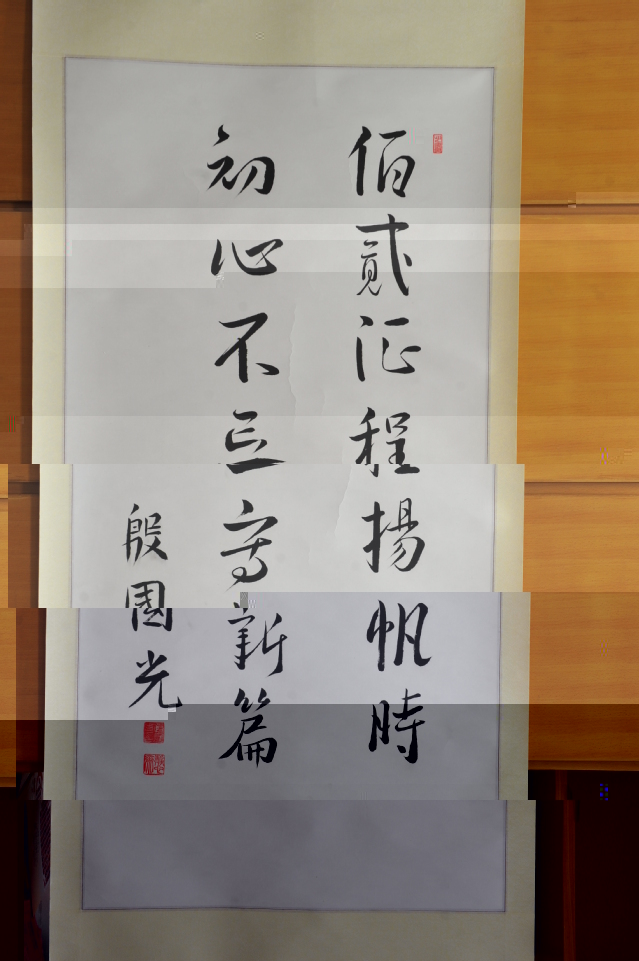 佰貳征程揚帆時
初心不忘寫新篇
殷國光